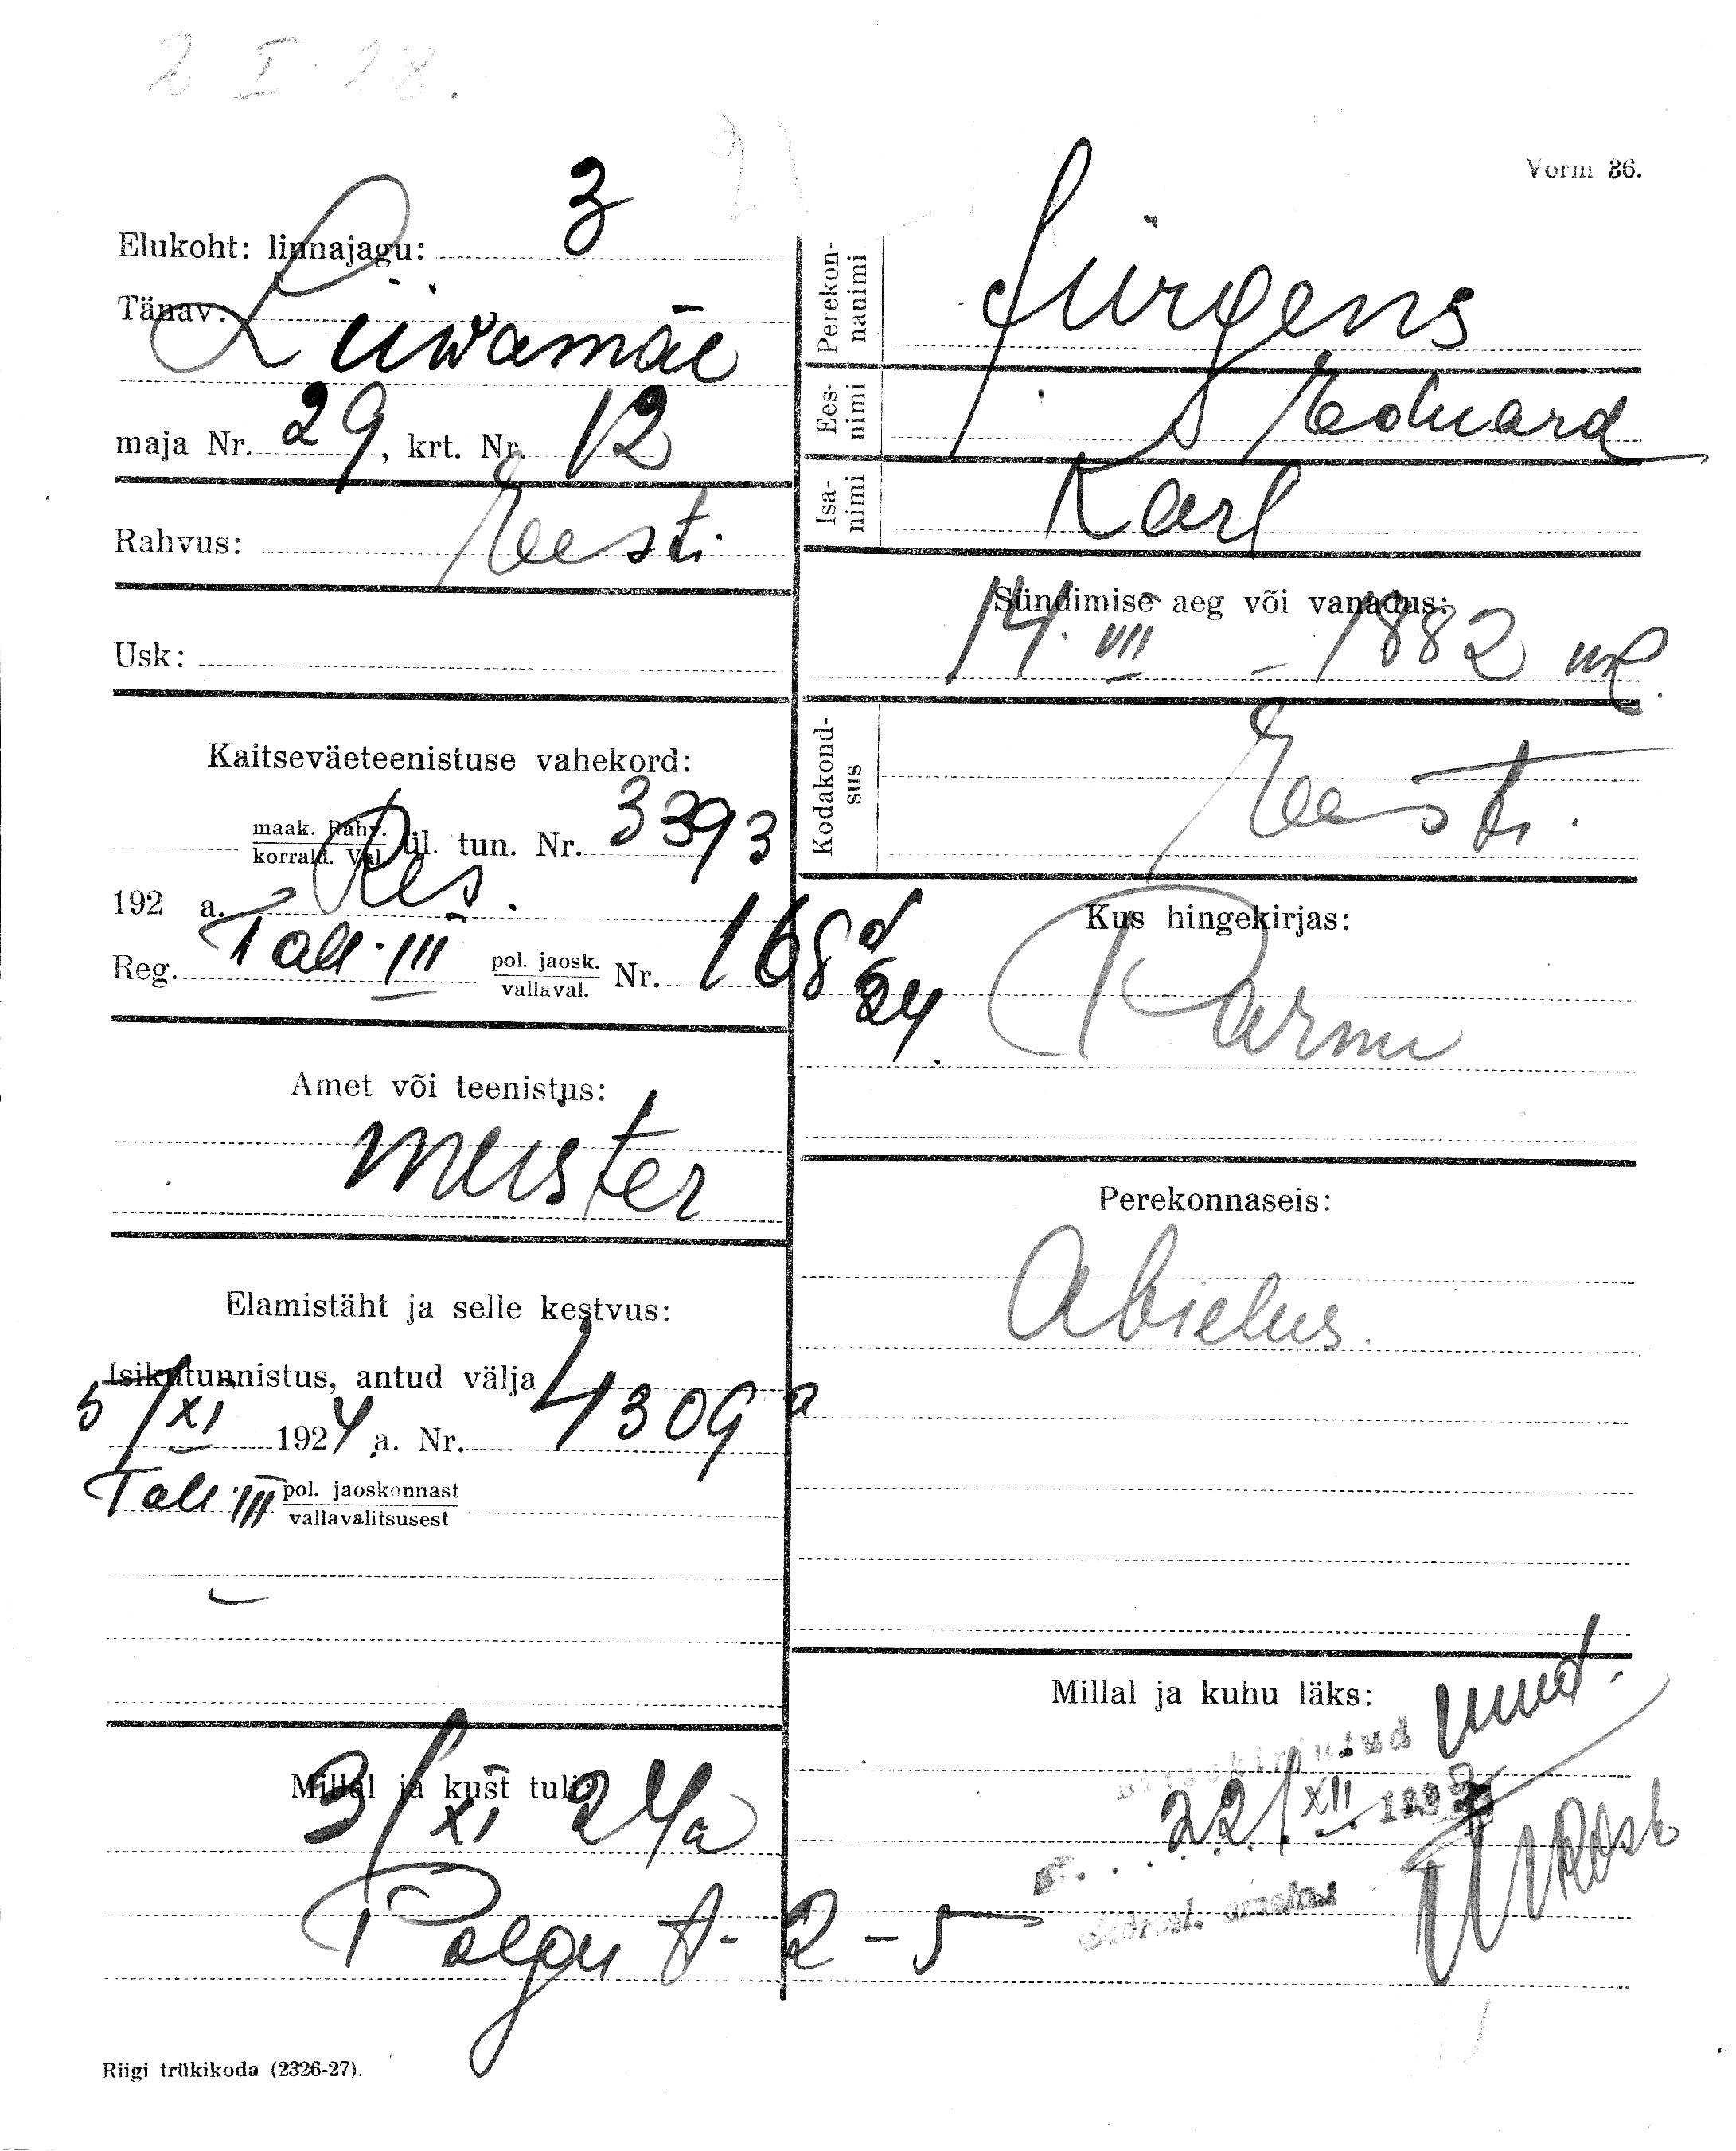 2 I 28.
Vorm 36.
3
Elukoht: linnajagu:
Tänav: Liiwamäe
maja Nr. 29, krt. Nr. 12
Rahvus: Eesti
Usk:
Kaitseväeteenistuse vahekord:
maak. Rahv.
korrald. Val. ül. tun. Nr. 3393
192 a. Res.
Reg. Tall. III pol. jaosk. vallaval. Nr. 168 d
24.
Amet või teenistus:
meister
Elamistäht ja selle kestvus:
Isikutunnistus, antud välja
5/XI 1924 a. Nr. 4309 a
Tall. III pol. jaoskonnast
vallavalitsusest
Millal ja kust tuli:
3/XI 24 a
Polgu t- 2 - 5
Riigi trükikoda (2326-27).
Perekon-
nanimi
Jürgens
Ees-
nimi
Eduard
Isa-
nimi
Karl
Sündimise aeg või vanadus:
14. VII - 1882
Kodakond-
sus
Eesti.
Kus hingekirjas:
Pärnu
Perekonnaseis:
Abielus.
Millal ja kuhu läks:
22/XII 1927